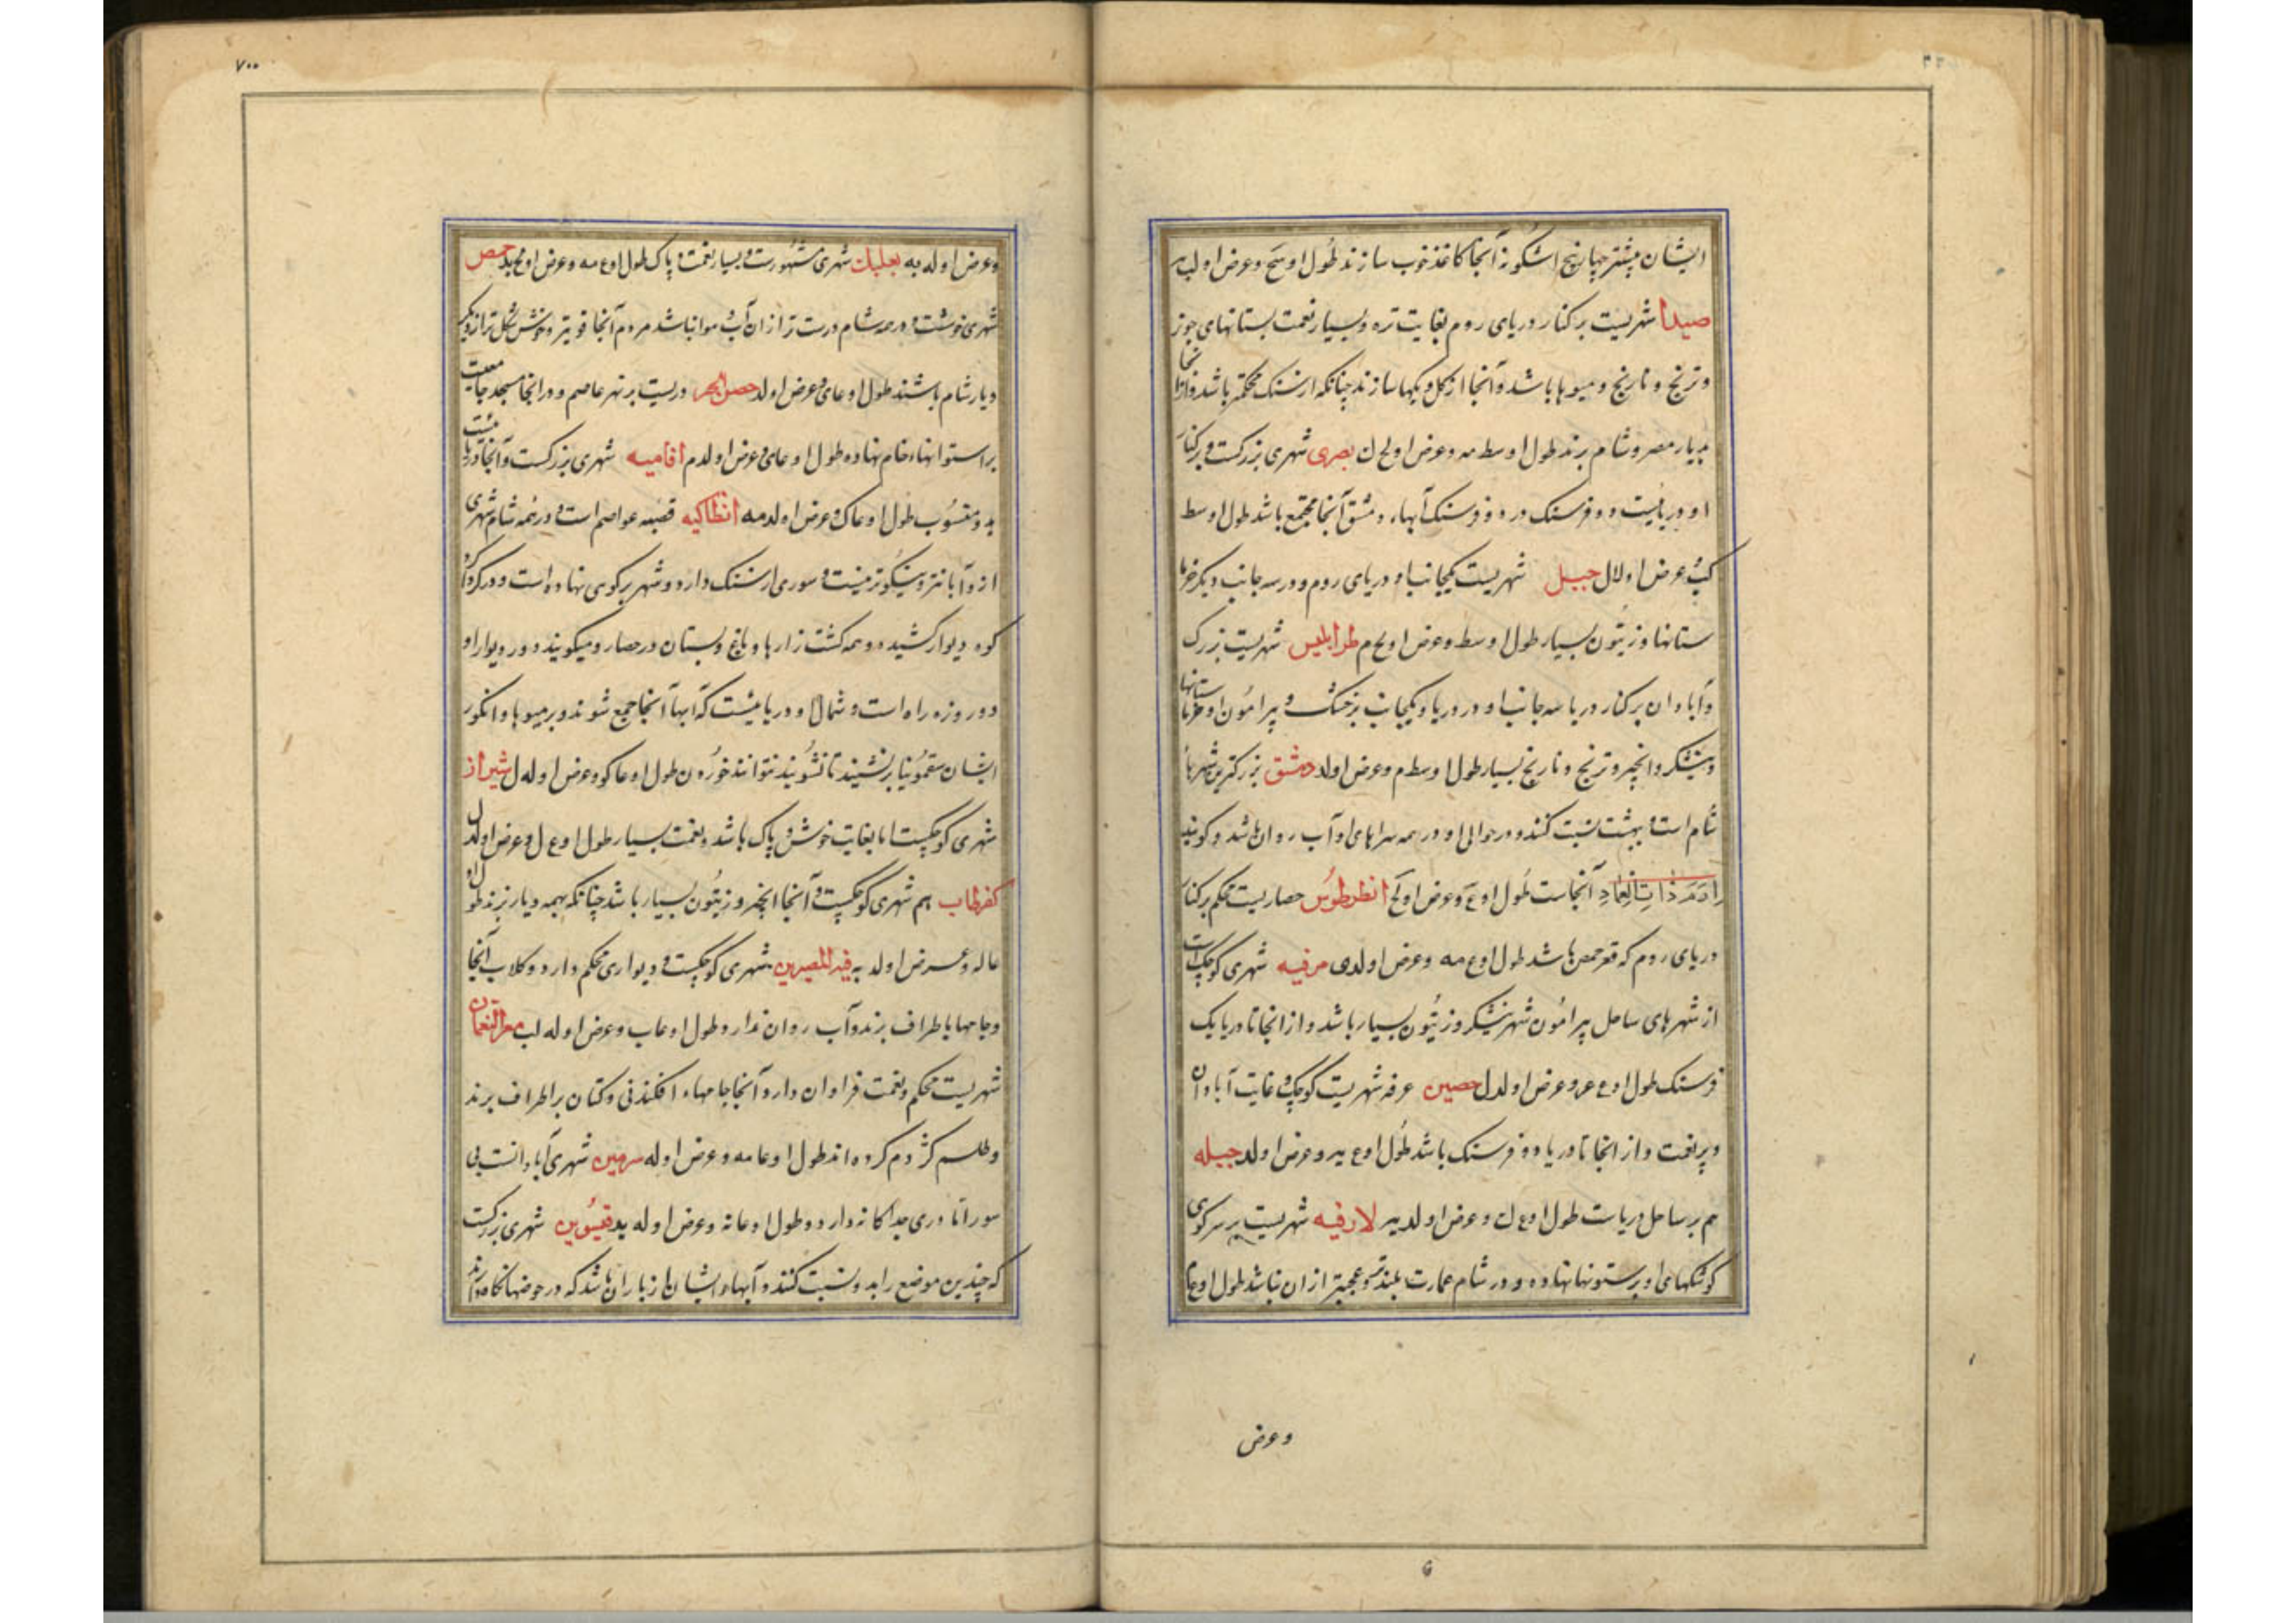 ایشان پیشتر چهار پنج اشکونه آنجا کاغذ خوب سازند طول او سح وعرض او لب
صیدا شهریست بر کنار دریای روم بغایت تره وبسیار نعمت بستانهای جوز
وترنج ونارنج ومیوها باشد وآنجا از کل دیکها سازند چنانکه از سنک محکمتر باشد وازانجا
بدیار مصر وشام برند طول او سط مه وعرض او لح ن بصری شهری بزرکست وبر کنار
او دریائیست دو فرسنک در دو فرسنک آبهاء دمشق آنجا مجتمع باشد طول او سط
عرض او لال جبیل شهریست یکجانب او دریای روم ودر سه جانب دیکر خرما
ستانها وزیتون بسیار طول او سط وعرض او لح م طرابلیس شهریست بزرک
وآبادان بر کنار دریا سه جانب او در دریا ویکجانب بر خشک وپیرامون او خرماستانها
ونیشکر وانجیر وترنج ونارنج بسیار طول او سط م وعرض او لد دمشق بزرکترین شهرهاء
شام است وببهشت نسبت کنند ودر حوالی او ودر همه سراهای او آب روان باشد وکویند
اِرَمَ ذَاتِ الْعِمَادِ آنجاست طول او ع وعرض او لح انطرطوس حصاریست محکم بر کنار
دریای روم که ثغر حمص باشد طول او ع مه وعرض او لدی مرقیه شهری کوچکست
از شهرهای ساحل پیرامون شهر نیشکر وزیتون بسیار باشد واز انجا تا دریا یک
فرسنک طول او ع عر وعرض او لدل حصین عرفه شهریست کوچک وغایت آبادان
وپر نعمت واز انجا تا دریا دو فرسنک باشد طول او ع یه وعرض او لد جبله
هم بر ساحل دریاست طول او ع ل وعرض او لد یه لادقیه شهریست بر سر کوی
کوشکهای او بر ستونها نهاده ودر شام عمارت بلندتر وعجبتر از ان نباشد طول او عا
وعرض
۷۰۰
وعرض او له یه بعلبک شهری مشهورست وبسیار نعمت وپاک طول او ع مه وعرض او لح ید حمص
شهری خوشست ودر همه شام درست تر از ان آب وهوا نباشد مردم آنجا قویتر وخوش شکل تر از دیکر
دیار شام باشند طول او عای وعرض او لد حصن الحر دریست بر نهر عاصم ودر انجا مسجد جامعیت
بر استوانهاء خام نهاده طول او عای وعرض او لدم افامیه شهری بزرکست وآنجا دریائیست
بدو منسوب طول او عاک وعرض او لدمه انطاکیه قصبه عواصم است ودر همه شام شهری
از و آبادانتر ونیکوتر نیست وسوری از سنک دارد وشهر بر کوهی نهاده است ودر کرداکرد
کوه دیوار کشیده وهمه کشت زارها وباغ وبستان در حصار ومیکویند دور دیوار او
دو روزه راه است وشمال او دریائیست که آبها آنجا جمع شوند وبر میوها وانکور
ایشان سقمونیا برنشیند تا نشویند نتوانند خوردن طول او عا کو وعرض او له ل شیراز
شهری کوچکست اما بغایت خوش وپاک باشد ونعمت بسیار طول او ع ل وعرض او لدل
کفرطاب هم شهری کوچکست وآنجا انجیر وزیتون بسیار باشد چنانکه بهمه دیار برند طول او
عا له وعرض او لد یه قید المصرین شهری کوچکست ودیواری محکم دارد وکلاب آنجا
وجامها باطراف برند وآب روان ندارد وطول او عاب وعرض او له لب معرةالنعمان
شهریست محکم ونعمت فراوان دارد آنجا جامهاء افکندنی وکتان بر اطراف برند
وطلسم کژدم کرده اند طول او عا مه وعرض او له سرمین شهری آبادانست بی
سور اما دری جداکانه دارد وطول او عا نه وعرض او له ید قیسوین شهری بزرکست
که چندین موضع را بدو نسبت کنند وآبهاء ایشان از باران باشد که در حوضها نکاه دارند